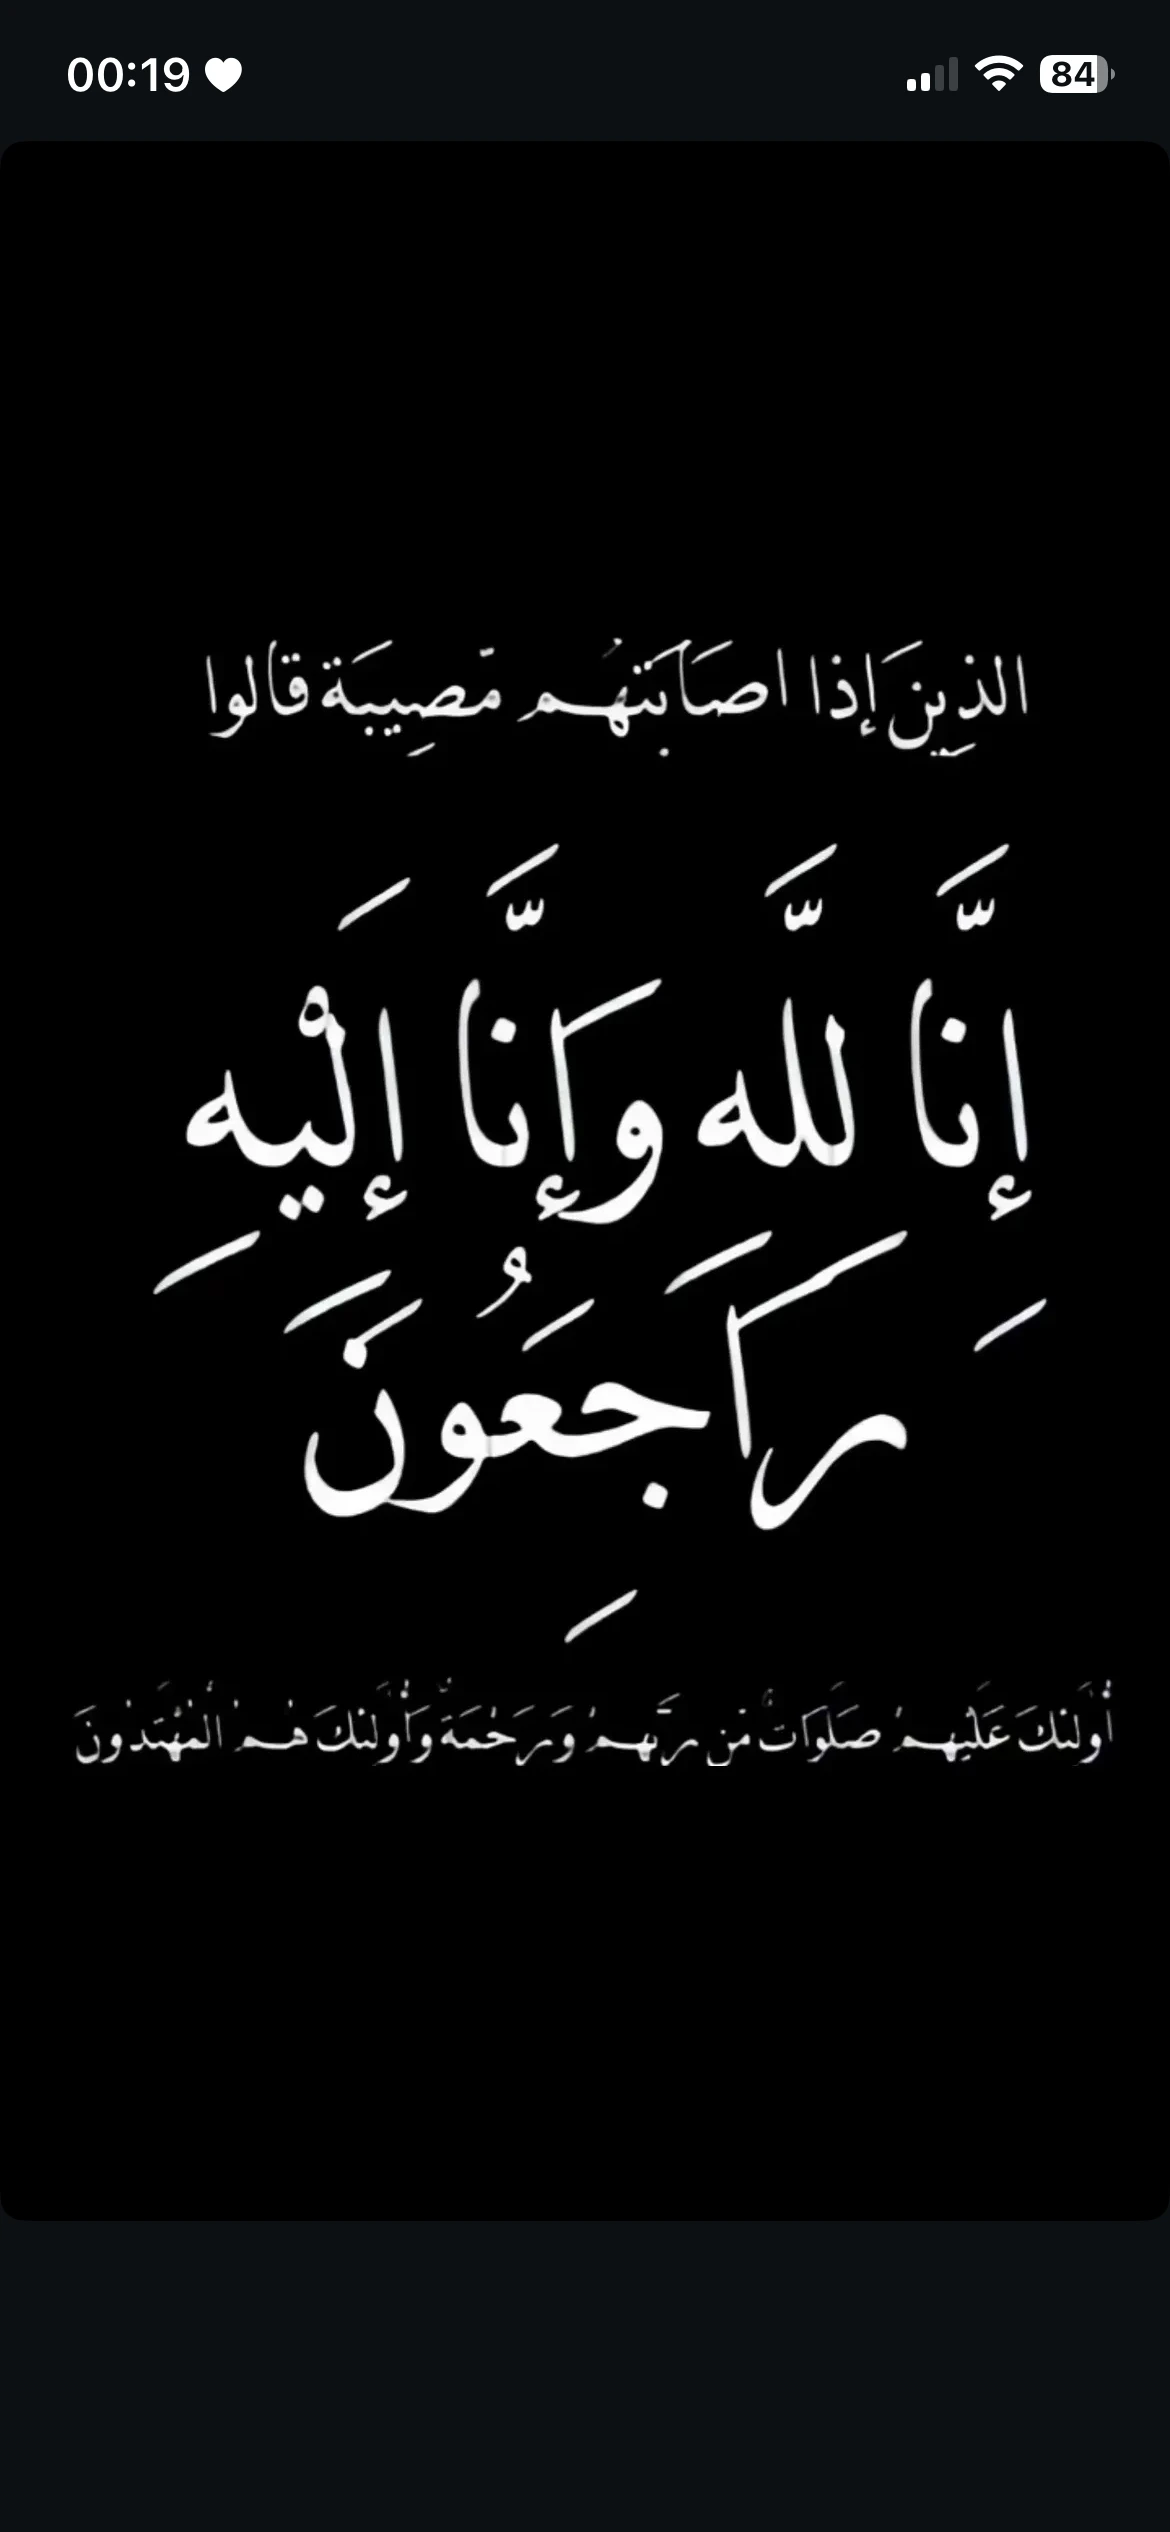 00:19
84
الذِينَ إذا اصَابَتهُم مّصِيبَة قالوا
إنَّا للَّه وَإنَّا إلَيْهِ
رَاجِعُونَ
أُولَئكَ عَلَيهِمْ صَلَوَاتٌ مّن رَّبّهِمْ وَرَحْمَةٌ وَأُولَئكَ هُمُ الْمُهْتَدُونَ